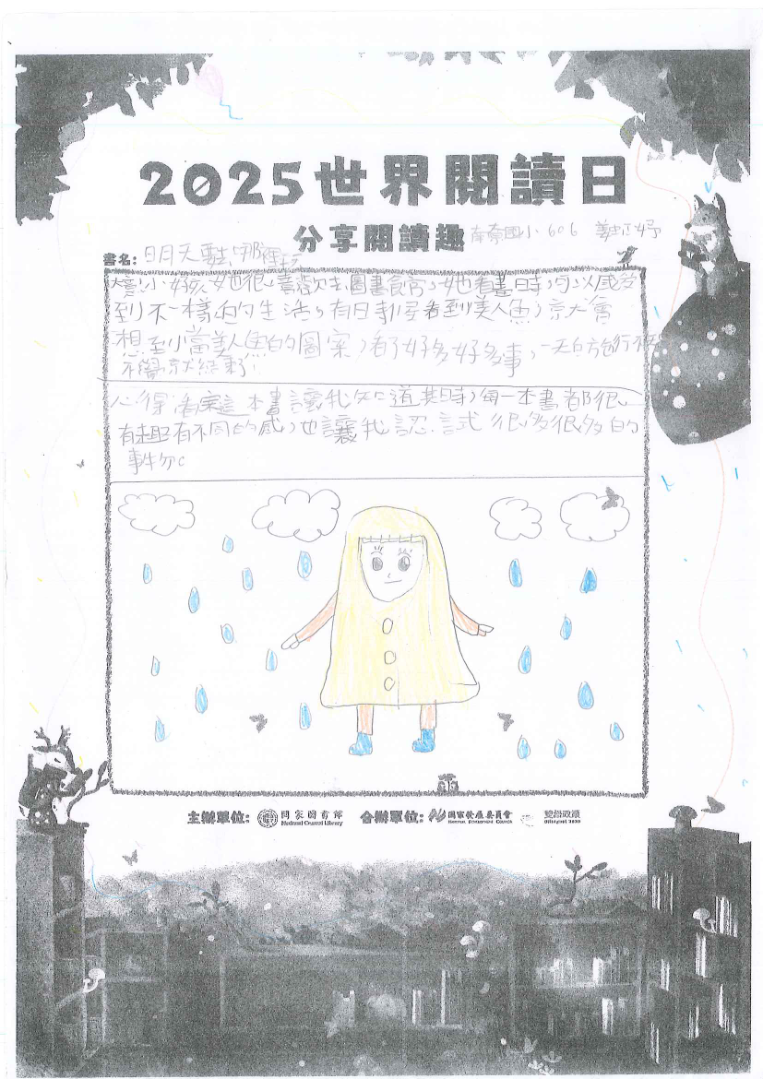 2025世界閱讀日
分享閱讀趣 南奈國小 606
書名: 明天要去哪裡玩
小女孩她很喜歡去圖書館,她看書時可以感受
到不一樣的生活,有時候看到美人魚,就會
想到小當美人魚的圖案,看了好多好多事,一天的旅行不
不覺就結束了!
心得 看完這本書讓我知道其時,每一本書都很
有趣有不同的感,也讓我認識很多很多的
事物。
主辦單位: 國家圖書館 National Central Library 合辦單位: 國家發展委員會 National Development Council 雙語政策 Bilingual 2030